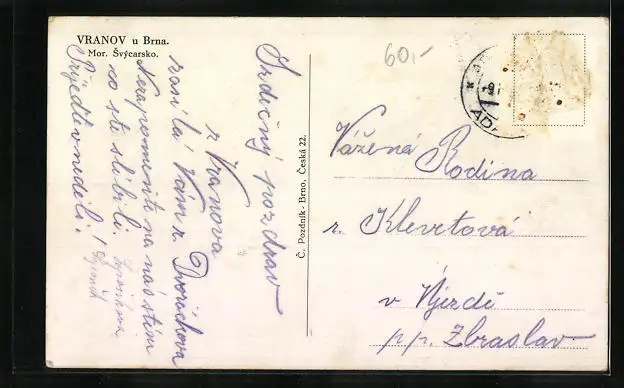 VRANOV u Brna.
Mor. Švýcarsko.
Srdičný pozdrav
z Vranova
Vám r. Dvořáchova
Nezapomeňte na nás s tím
co ste slíbili.
Přijeďte v neděli!
Č. Pozdník - Brno, Česká 22.
60,-
Vážená Rodina
r. Klevetová
v Újezdě
p/p. Zbraslav